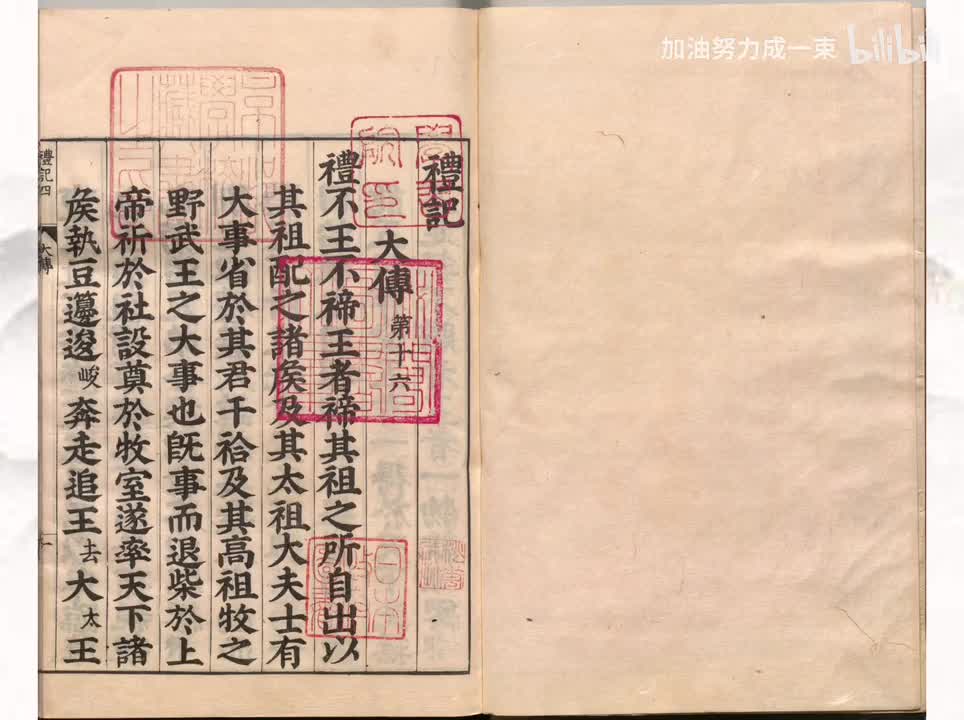 加油努力成一束 bilibili
禮記
大傳第十六
禮不王不禘王者禘其祖之所自出以
其祖配之諸矦及其太祖大夫士有
大事省於其君干祫及其高祖牧之
野武王之大事也旣事而退柴於上
帝祈於社設奠於牧室遂率天下諸
矦執豆籩逡峻奔走追王去大太王
禮記四
大傳